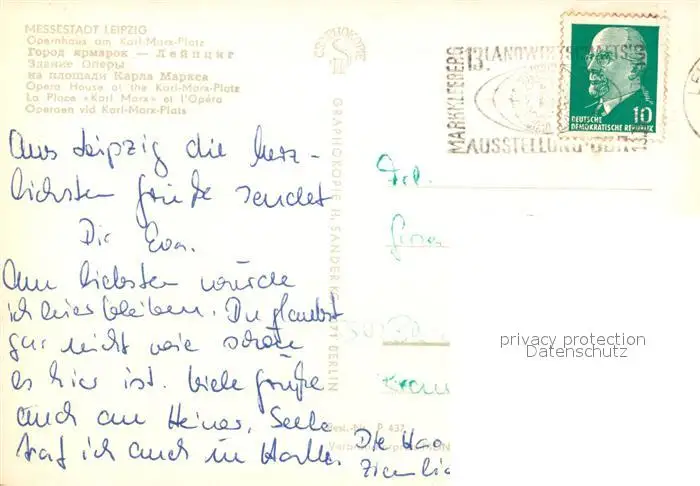 MESSESTADT LEIPZIG
Opernhaus am Karl-Marx-Platz
Город ярмарок — Лейпциг
Здание Оперы
на площади Карла Маркса
Opera House at the Karl-Marx-Platz
La Place «Karl Marx» et l'Opéra
Operaen vid Karl-Marx-Plats
GRAPHOKOPIE
GRAPHOKOPIE H. SANDER KG
BERLIN
MARKKLEEBERG
13. LANDWIRTSCHAFTS
AUSSTELLUNG DDR
10
DEUTSCHE
DEMOKRATISCHE REPUBLIK
Aus Leipzig die herz-
lichsten Grüße sendet
Dir Eva.
Am liebsten würde
ich hier bleiben. Du glaubst
gar nicht wie schön
es hier ist. Viele Grüße
auch an Heiner,
traf ich auch in Halle.
Frl.
Best.-Nr. P 437
Die Haa
privacy protection
Datenschutz